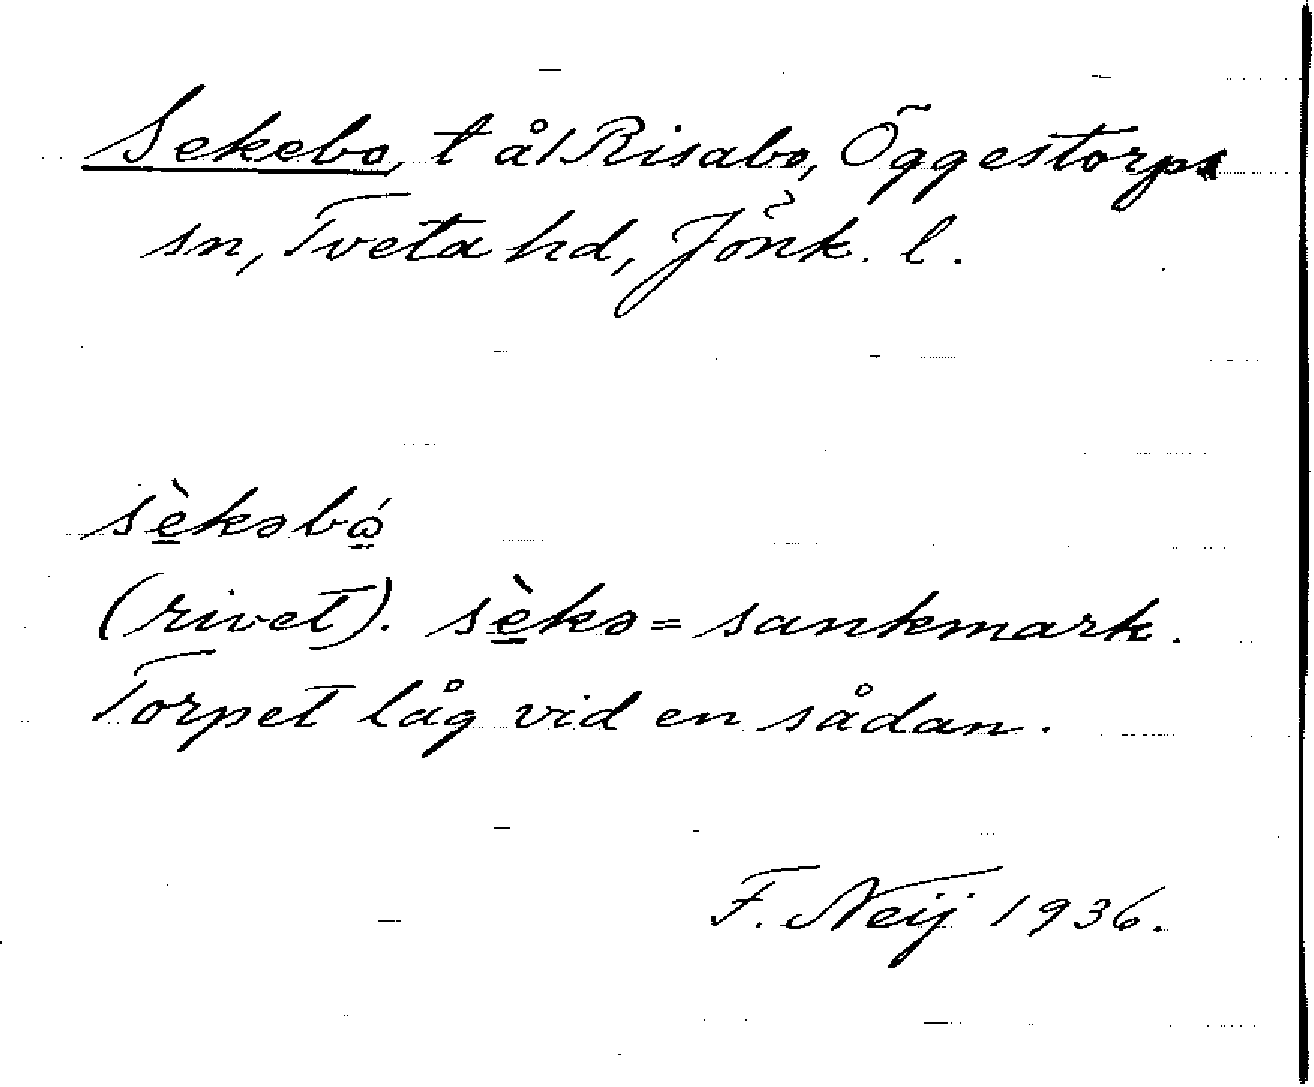 Sekebo, t å/Risabo, Öggestorps
sn, Tveta hd, Jönk. l.
sè̠kəbǿ̤
(rivet). sè̠kə = sankmark.
Torpet låg vid en sådan.
F. Neij 1936.